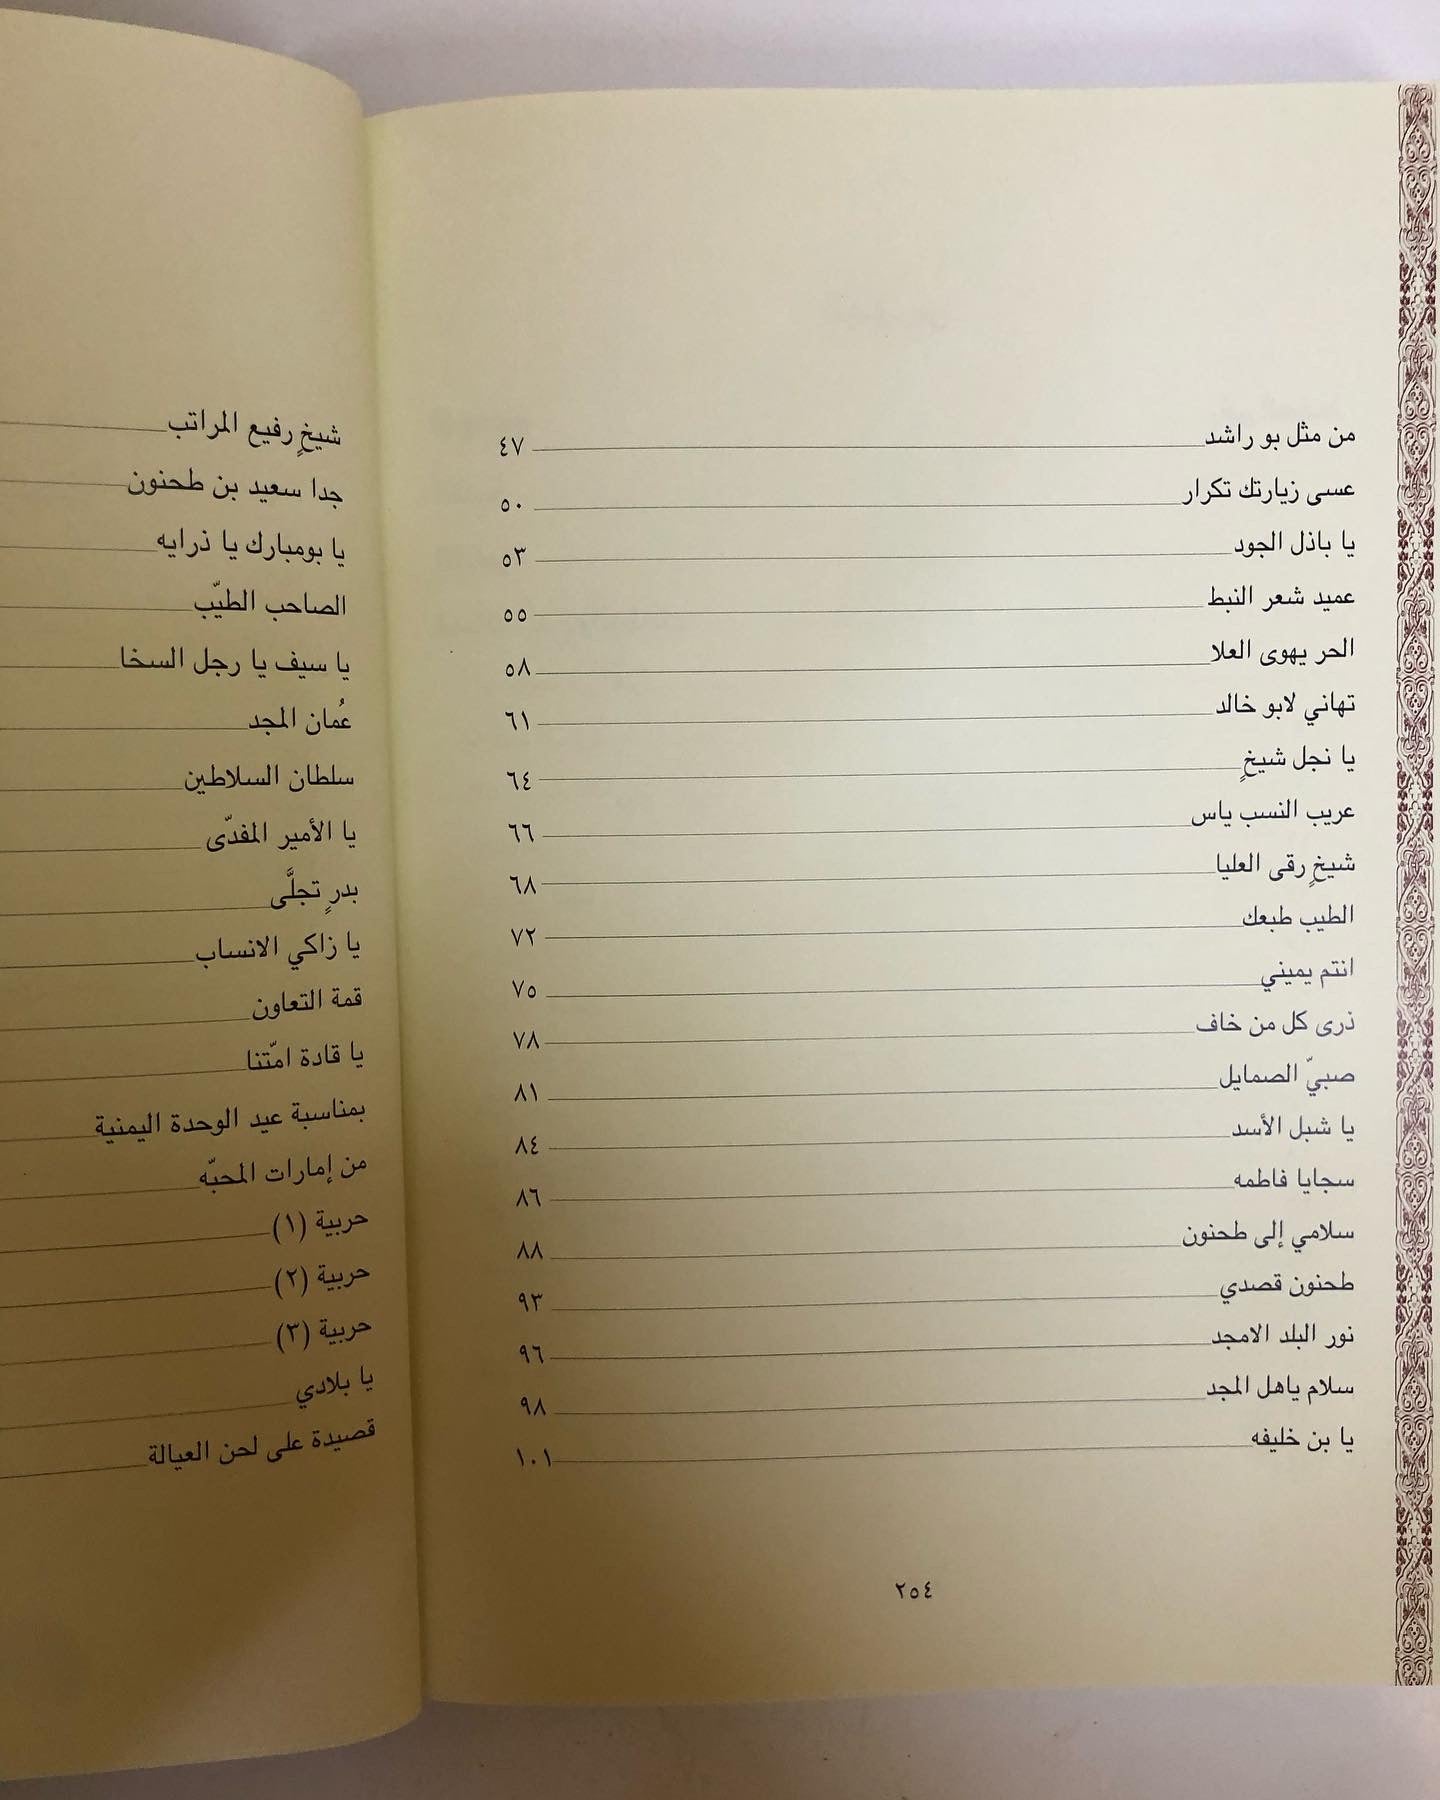 من مثل بو راشد ٤٧
عسى زيارتك تكرار ٥٠
يا باذل الجود ٥٣
عميد شعر النبط ٥٥
الحر يهوى العلا ٥٨
تهاني لابو خالد ٦١
يا نجل شيخٍ ٦٤
عريب النسب ياس ٦٦
شيخٍ رقى العليا ٦٨
الطيب طبعك ٧٢
انتم يميني ٧٥
ذرى كل من خاف ٧٨
صبيّ الصمايل ٨١
يا شبل الأسد ٨٤
سجايا فاطمه ٨٦
سلامي إلى طحنون ٨٨
طحنون قصدي ٩٣
نور البلد الامجد ٩٦
سلام ياهل المجد ٩٨
يا بن خليفه ١٠١
٢٥٤
شيخٍ رفيع المراتب
جدا سعيد بن طحنون
يا بومبارك يا ذرايه
الصاحب الطيّب
يا سيف يا رجل السخا
عُمان المجد
سلطان السلاطين
يا الأمير المفدّى
بدرٍ تجلَّى
يا زاكي الانساب
قمة التعاون
يا قادة امّتنا
بمناسبة عيد الوحدة اليمنية
من إمارات المحبّه
حربية (١)
حربية (٢)
حربية (٣)
يا بلادي
قصيدة على لحن العيالة